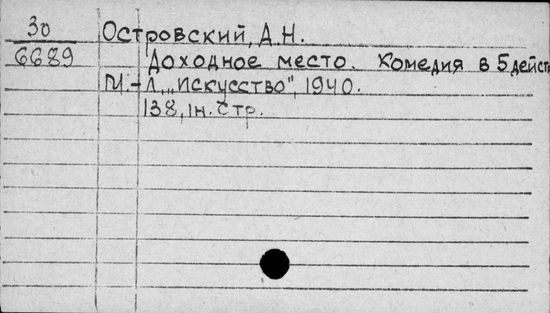 30 Островский, А.Н.
6689 Доходное место. Комедия в 5 дейст
М.-Л., „Искусство", 1940.
138, 1н. стр.